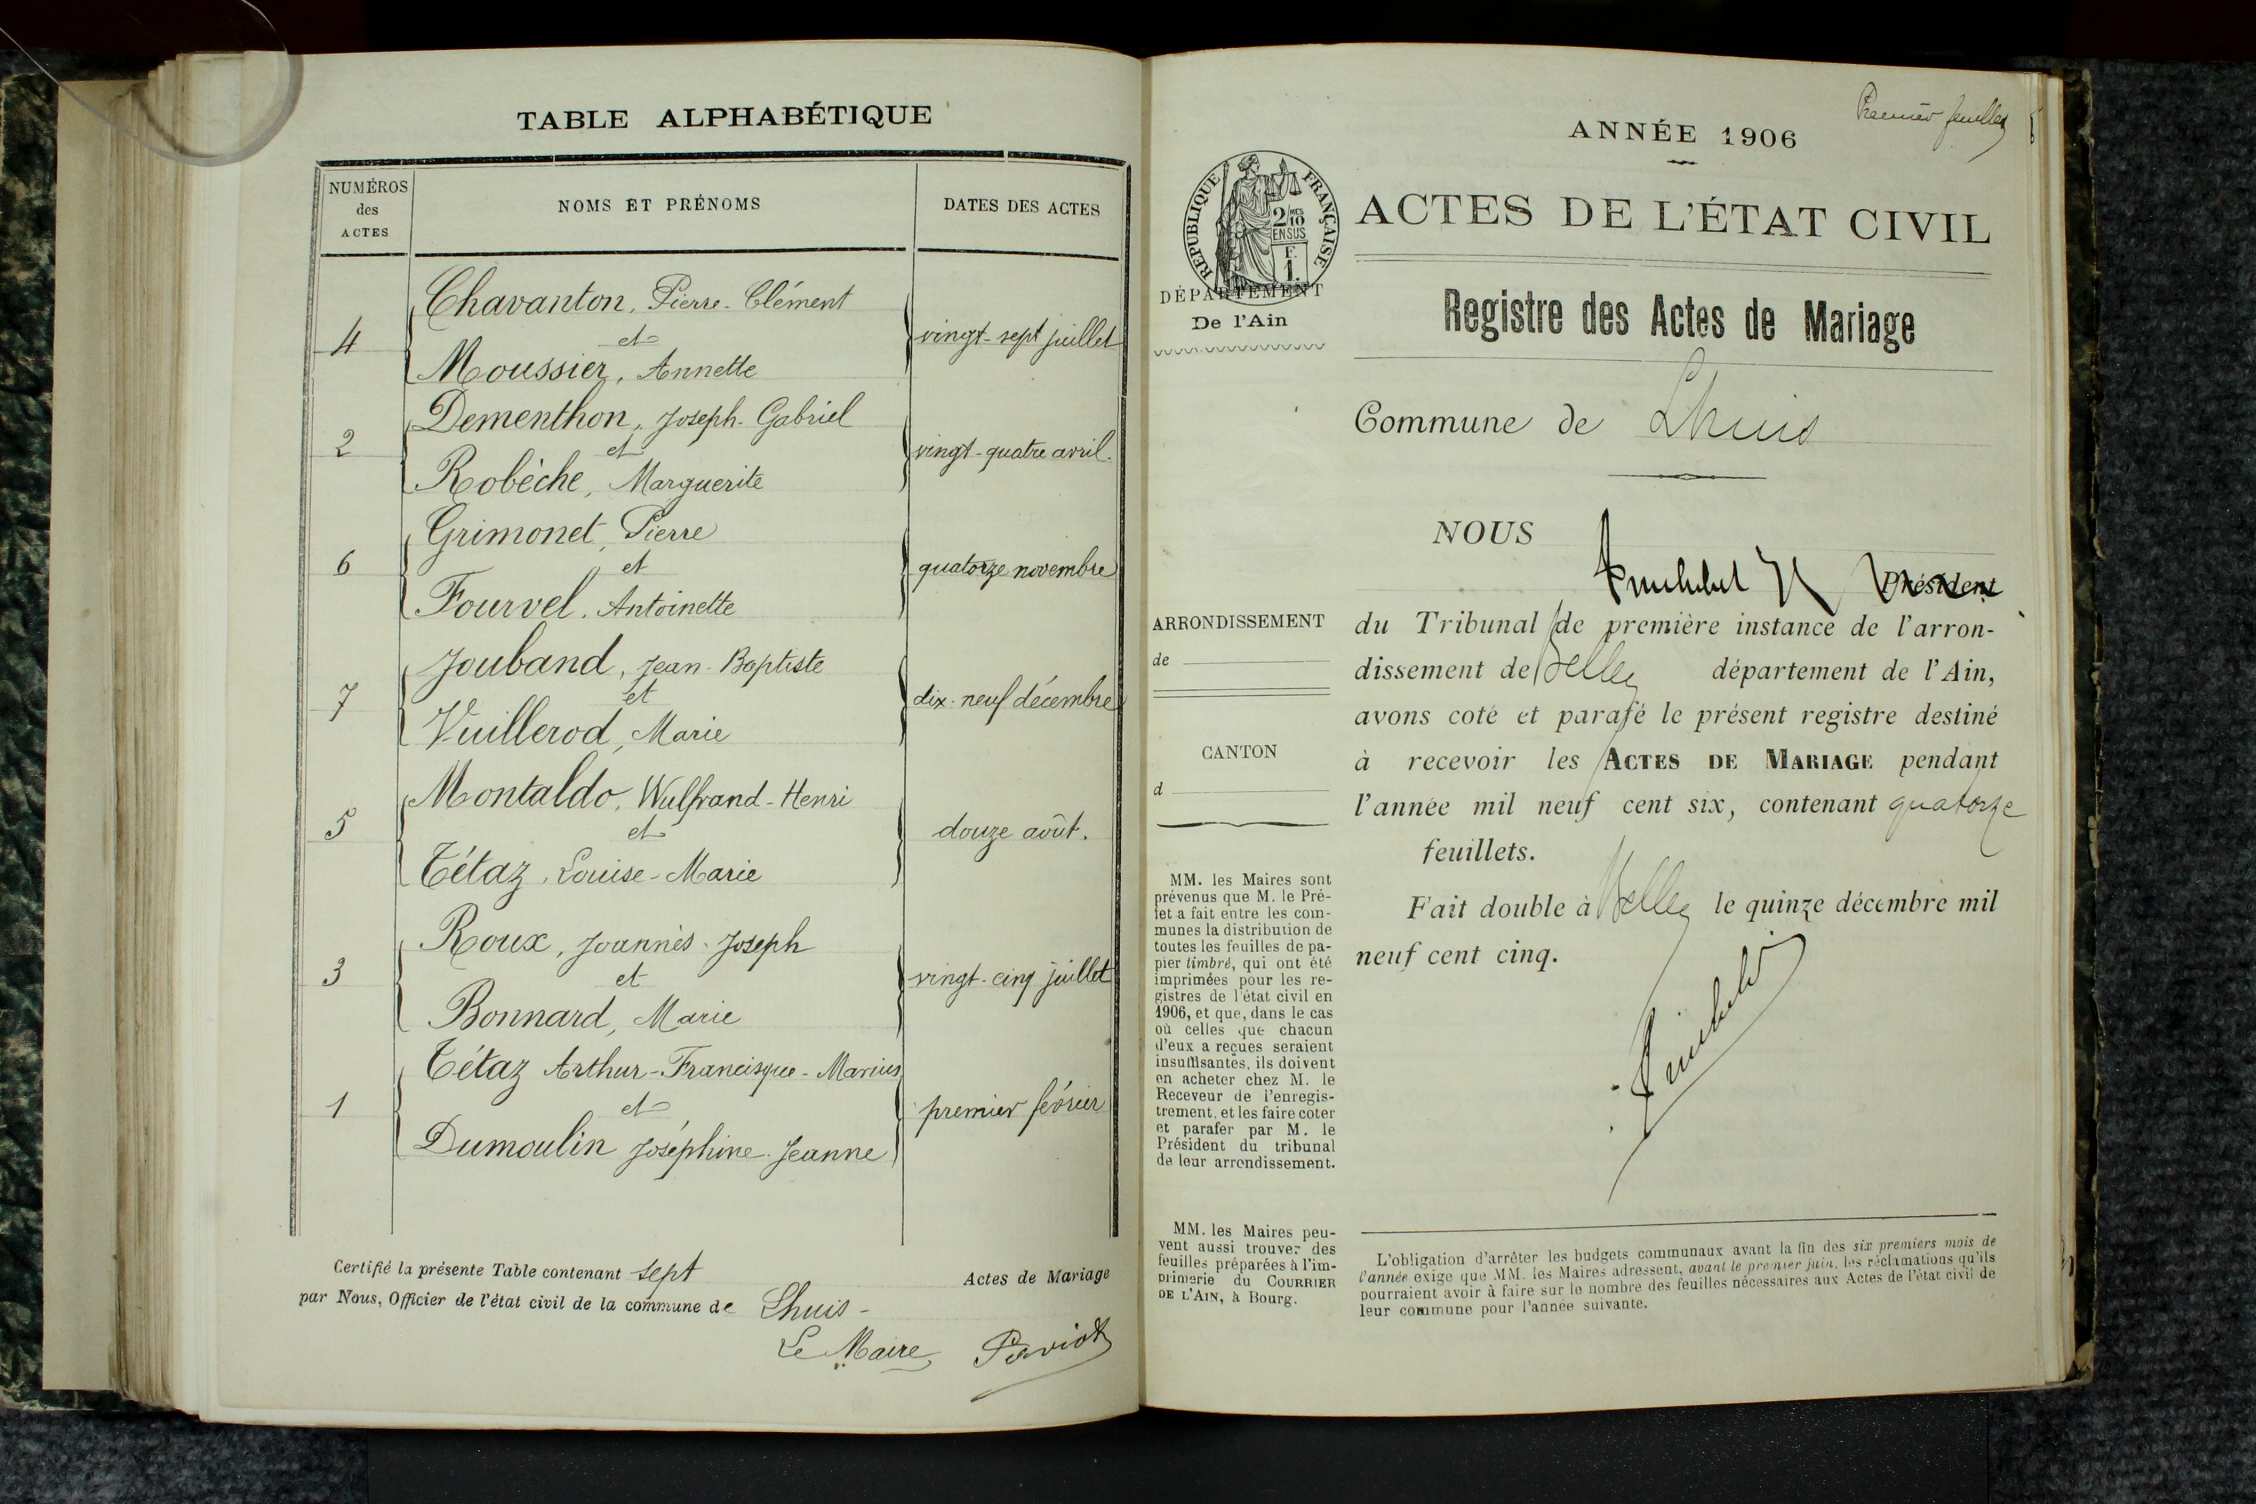 TABLE ALPHABÉTIQUE
NUMÉROS
des
ACTES
NOMS ET PRÉNOMS
DATES DES ACTES
Chavanton, Pierre-Clément
4 et vingt-sept juillet
Moussier, Annette
Dementhon, Joseph-Gabriel
2 et vingt-quatre avril.
Robèche, Marguerite
Grimonet, Pierre
6 et quatorze novembre
Fourvel, Antoinette
Jouband, Jean-Baptiste
7 et dix-neuf décembre
Vuillerod, Marie
Montaldo, Wulfrand-Henri
5 et douze août.
Tétaz, Louise-Marie
Roux, Joannès-Joseph
3 et vingt-cinq juillet
Bonnard, Marie
Tétaz Arthur-Francisque-Marius
1 et premier février
Dumoulin Joséphine-Jeanne
Certifié la présente Table contenant sept Actes de Mariage
par Nous, Officier de l'état civil de la commune de Lhuis -
Le Maire Paviot
Premier feuillet
ANNÉE 1906
RÉPUBLIQUE FRANÇAISE
2/10 MES
EN SUS
F.
1.
ACTES DE L'ÉTAT CIVIL
DÉPARTEMENT
De l'Ain
Registre des Actes de Mariage
Commune de Lhuis
NOUS
Président
du Tribunal de première instance de l'arron-
dissement de Belley département de l'Ain,
avons coté et parafé le présent registre destiné
à recevoir les ACTES DE MARIAGE pendant
l'année mil neuf cent six, contenant quatorze
feuillets.
Fait double à Belley le quinze décembre mil
neuf cent cinq.
ARRONDISSEMENT
de
CANTON
d
MM. les Maires sont
prévenus que M. le Pré-
fet a fait entre les com-
munes la distribution de
toutes les feuilles de pa-
pier timbré, qui ont été
imprimées pour les re-
gistres de l'état civil en
1906, et que, dans le cas
où celles que chacun
d'eux a reçues seraient
insuffisantes, ils doivent
en acheter chez M. le
Receveur de l'enregis-
trement, et les faire coter
et parafer par M. le
Président du tribunal
de leur arrondissement.
MM. les Maires peu-
vent aussi trouver des
feuilles préparées à l'im-
primerie du COURRIER
DE L'AIN, à Bourg.
L'obligation d'arrêter les budgets communaux avant la fin des six premiers mois de
l'année exige que MM. les Maires adressent, avant le premier juin, les réclamations qu'ils
pourraient avoir à faire sur le nombre des feuilles nécessaires aux Actes de l'état civil de
leur commune pour l'année suivante.